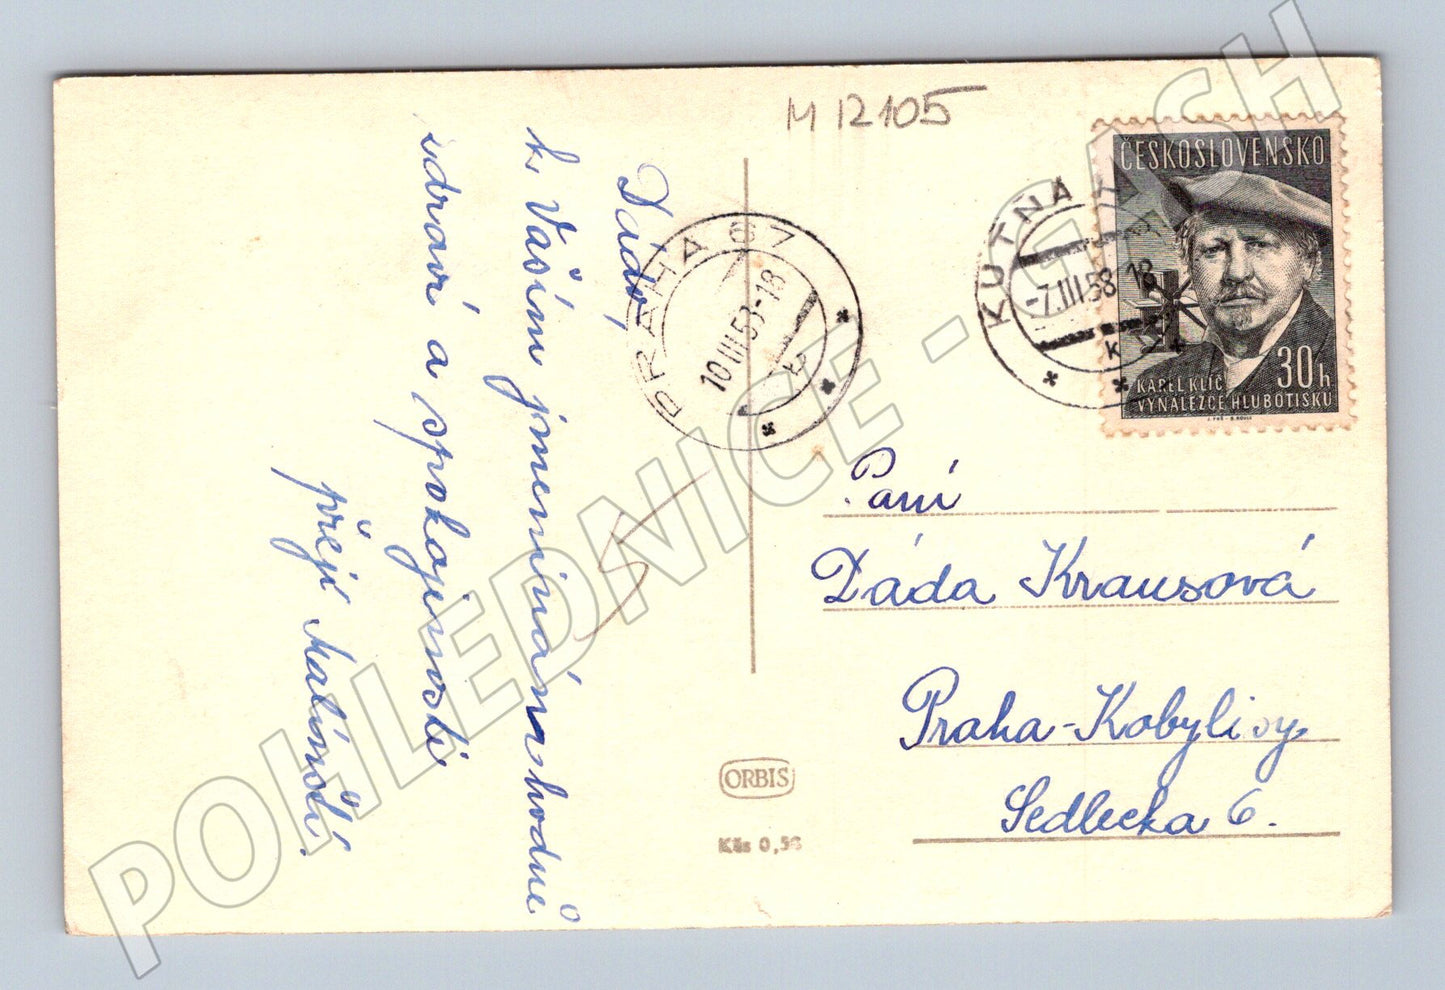 M 12105
ČESKOSLOVENSKO
KAREL KLÍČ
VYNÁLEZCE HLUBOTISKU
30h
KUTNÁ
-7.III.58-18
k
PRAHA 67
10 III 58-18
Dádo,
k Vašim jmeninám hodně
zdraví a spokojenosti
přejí Malinovi.
Paní
Dáda Krausová
Praha-Kobylisy
Sedlecka 6.
ORBIS
Kčs 0,56
POHLEDNICE - GASH